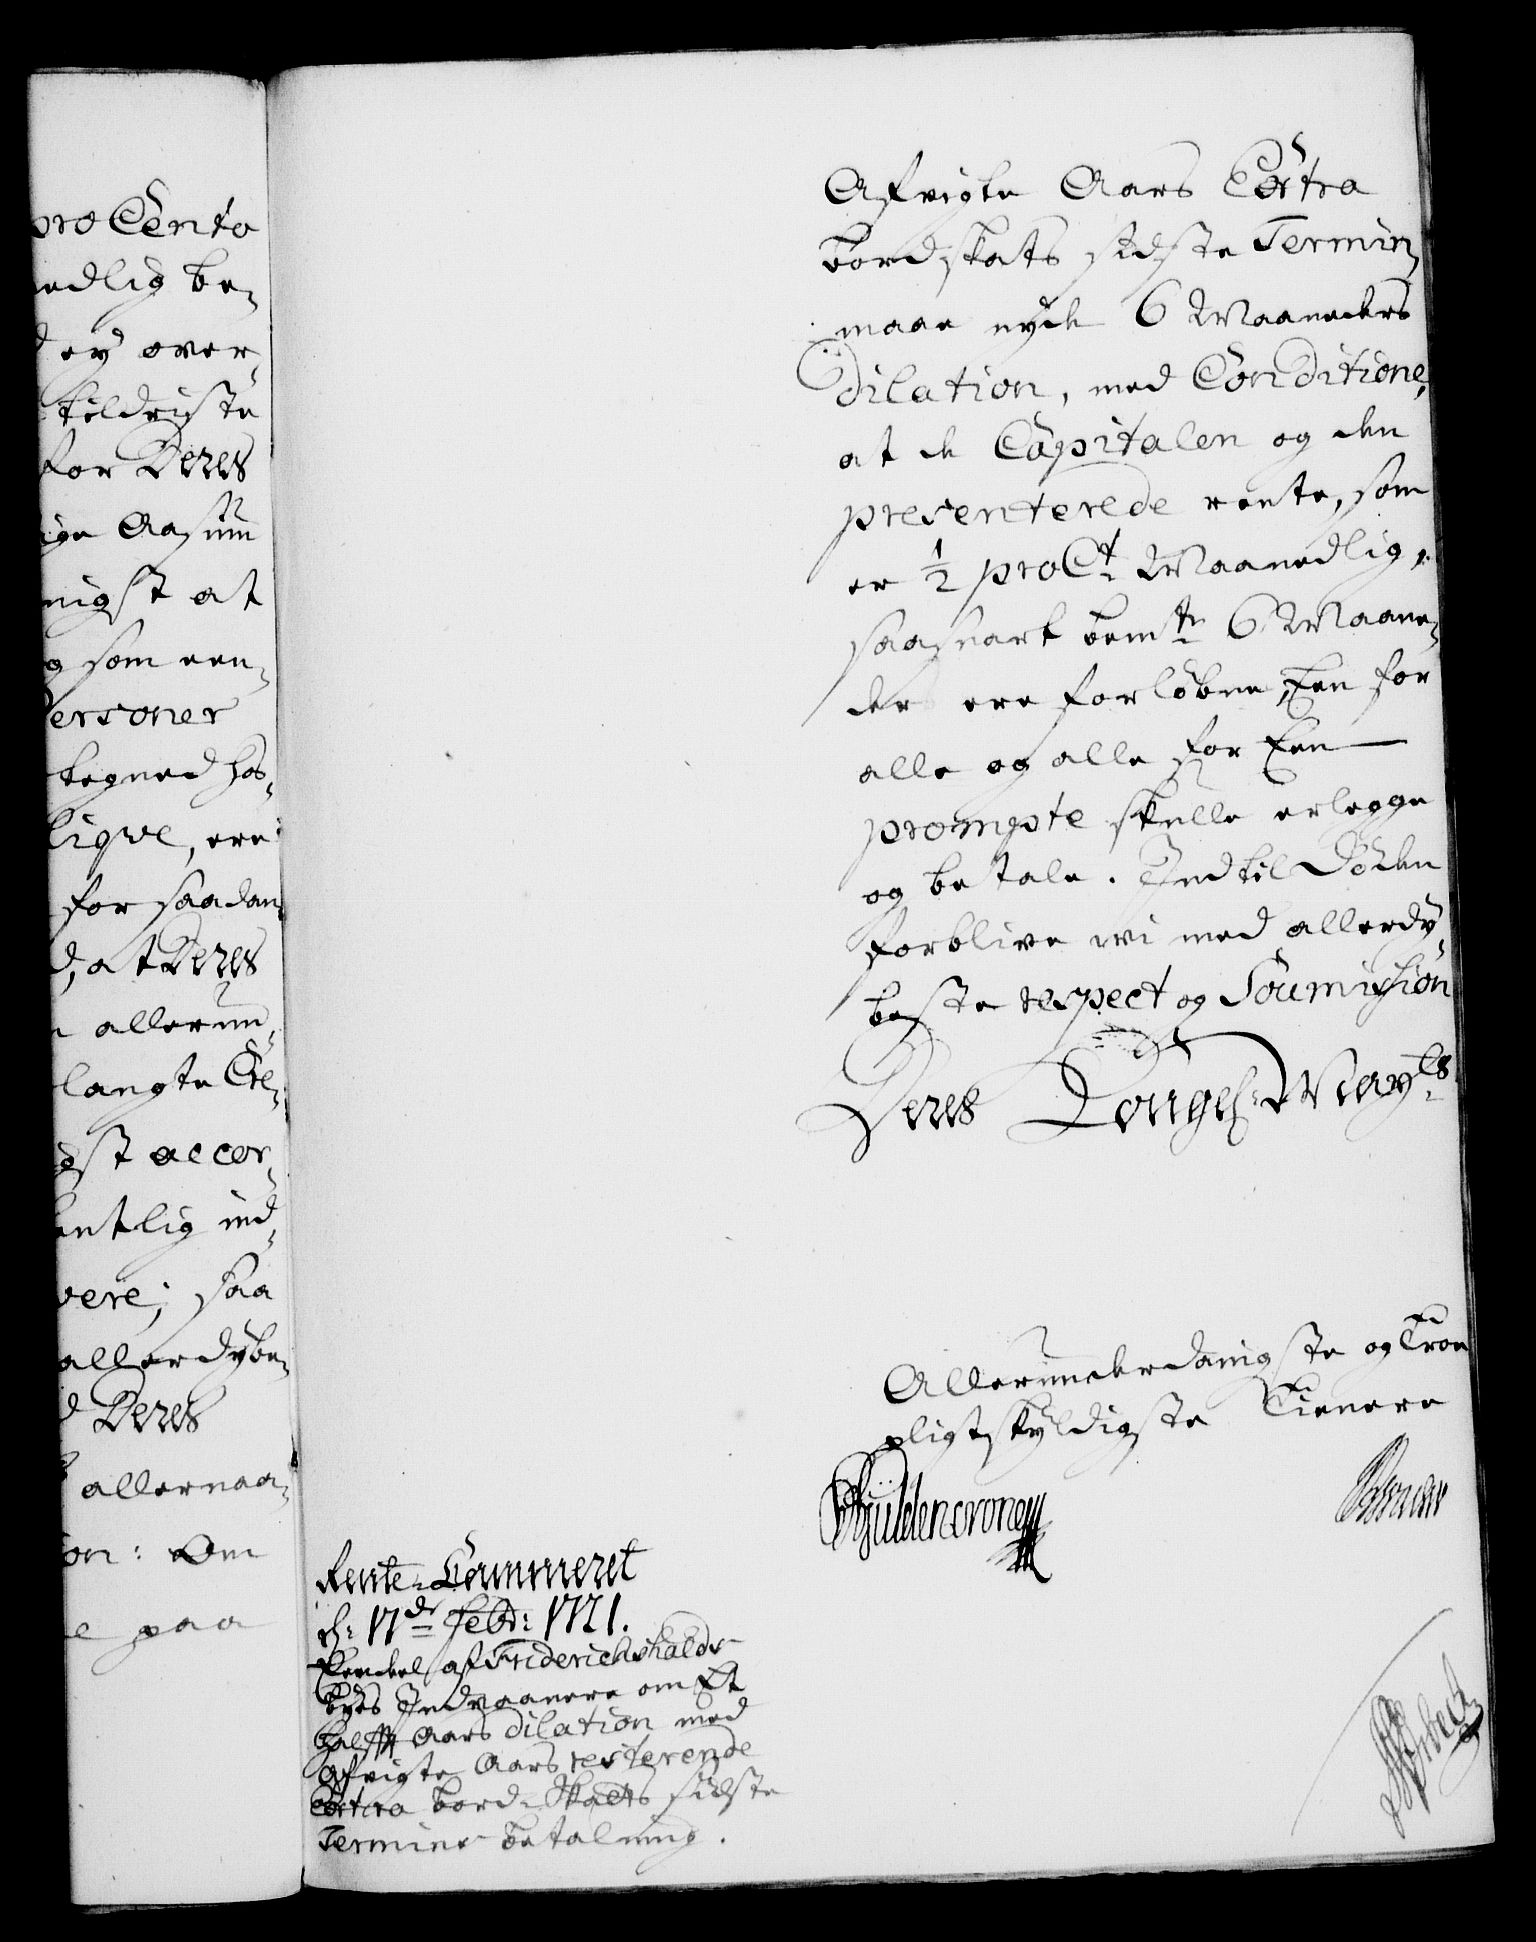 pro Cento
nedlig be-
ey over-
tildriste
for Deres
ige Aasiun
nigst at
g som een-
Personer
tegned hos-
lique, ere
for saadan
d, at Deres
allerun-
langte Cre-
gst accor-
entlig ind-
vere; saa
allerdybe-
d Deres
allernaa-
on: Om
e paa
Afvigte Aars Extra
bord skats sidste Termin,
maae nyde 6 Maaneders
dilation, med Conditione,
at de Capitalen og den
presenterede rente, som
er ½ pro Ct Maanedlig,
saasnart bemte 6 Maane-
der ere forløbne, Een for
alle og alle for Een
prompte skulle erlegge
og betale. Indtil Döden
forblive wi med allerdy-
beste respect og Soumission
Deres Kongel: Mayts
Allerunderdanigste og Troe
pligtskyldigste Tienere
Gÿldencrone
Rente-Cammeret
d: 17de Febr: 1721.
Eendel af Friderichshalds
byes Indvaanere om Et
halfft Aars dilation med
Afvigte Aars resterende
Extra bord-Skatts sidste
Termins betalning.